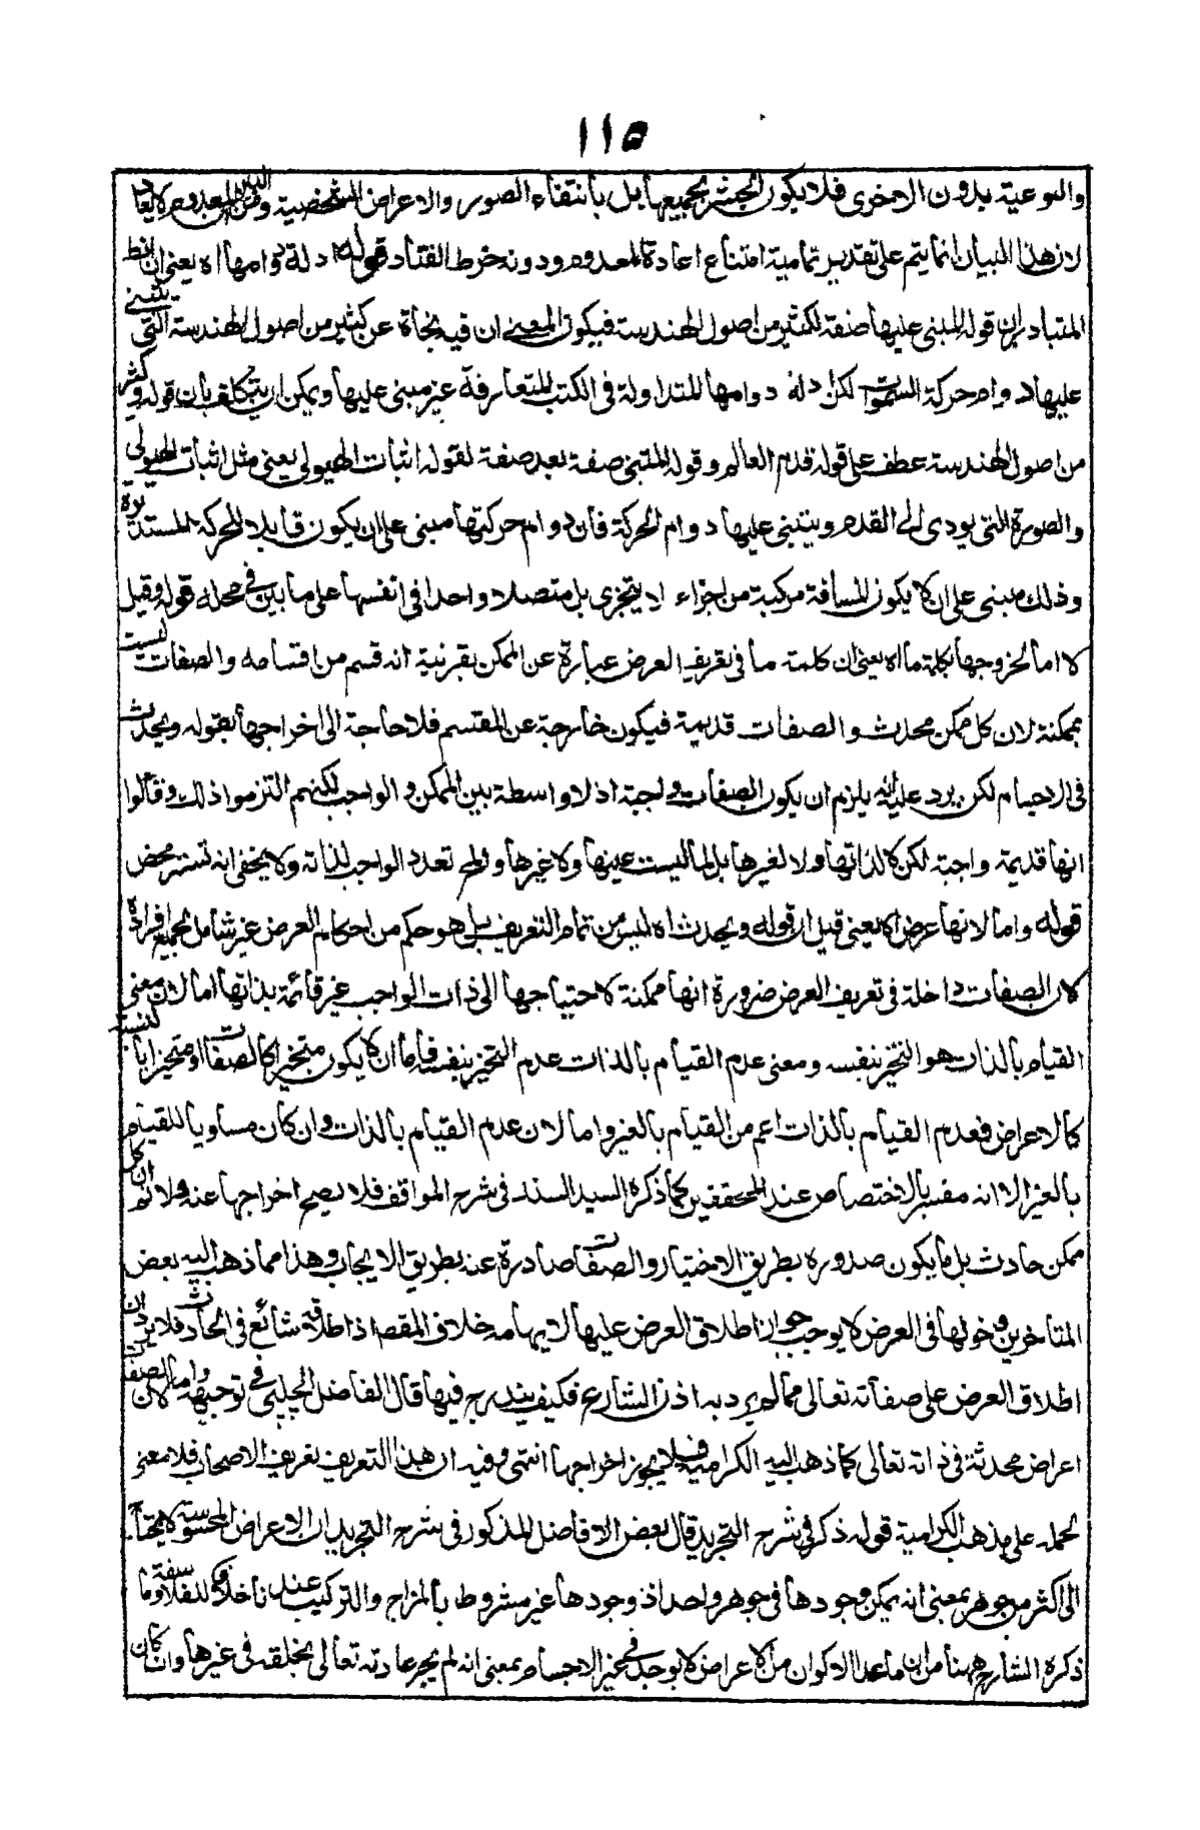 ١١٥
والنوعية بدون الاخرى فلا يكون الحشر بجميعها بل بانتقاء الصور والاعراض المشخصية المعدوم لا يعاد
لان هذا البيان انما يتم على تقدير تمامية امتناع اعادة المعدوم ودونه خرط القتاد قوله ادلة دوامها اه يعنى ان
المتبادر ان قوله المبنى عليها صفة لكثير من اصول الهندسة فيكون المعنى ان فيه نجاة عن كثير من اصول الهندسة التى يبتنى
عليها دوام حركة السموات لكن ادلة دوامها المتداولة فى الكتب المتعارفة غير مبنى عليها ويمكن ان يتكلف بان قوله وكثير
من اصول الهندسة عطف على قوله قدم العالم وقوله المبتنى صفة بعد صفة لقوله اثبات الهيولى يعنى مثل اثبات الهيولى
والصورة التى يودى الى القدم ويبتنى عليها دوام الحركة فان دوام حركتها مبنى على ان يكون قابلا للحركة المستديرة
وذلك مبنى على ان لا يكون المسافة مركبة من اجزاء لا يتجزى بل متصلا واحدا فى انفسها على ما بين فى محله قوله وقيل
لا اما لخروجها بكلمة ما اه يعنى ان كلمة ما فى تعريف العرض عبارة عن الممكن بقرينة انه قسم من اقسامه والصفات ليست
بممكنة لان كل ممكن محدث والصفات قديمة فيكون خارجة عن المقسم فلا حاجة الى اخراجها بقوله ويحدث
فى الاجسام لكن يرد عليه انه يلزم ان يكون الصفات واجبة اذ لا واسطة بين الممكن والواجب لكنهم التزموا ذلك وقالوا
انها قديمة واجبة لكن لا لذاتها ولا لغيرها بل لما ليست عينها ولا غيرها والمح تعدد الواجب لذاته ولا يخفى انه تستر محض
قوله واما لانها عرض اه يعنى قيل ان قوله ويحدث اه ليس من تمام التعريف بل هو حكم من احكام العرض غير شامل لجميع افراده
لان الصفات داخلة فى تعريف العرض ضرورة انها ممكنة لاحتياجها الى ذات الواجب غير قائمة بذاتها اما لان معنى
القيام بالذات هو التحيز بنفسه ومعنى عدم القيام بالذات عدم التحيز بنفسه فاما ان لا يكون متحيزا كالصفات او متحيزا
كالاعراض فعدم القيام بالذات اعم من القيام بالغير واما لان عدم القيام بالذات وان كان مساويا للقيام
بالغير الا انه مفسر بالاختصاص عند المحققين كما ذكره السيد السند فى شرح المواقف فلا يصح اخراجها عنه ولانم ان كل
ممكن حادث بل ما يكون صدوره بطريق الاختيار والصفات صادرة عنه بطريق الايجاب وهذا مما ذهب اليه بعض
المتاخرين ودخولها فى العرض لا يوجب جواز اطلاق العرض عليها لايهامه خلاف المقصد اذ اطلاقه شائع فى الحادث فلا يرد ان
اطلاق العرض على صفاته تعالى مما لم يرد به اذن الشارع فكيف يندرج فيها قال الفاضل الچلپى فى توجيهه واما لان الصفات
اعراض محدثة فى ذاته تعالى كما ذهب اليه الكرامية فلا يجوز اخراجها انتهى وفيه ان هذا التعريف تعريف الاصحاب فلا معنى
لحمله على مذهب الكرامية قوله ذكر فى شرح التجريد قال بعض الافاضل المذكور فى شرح التجريد ان الاعراض المحسوسة لا يحتاج
الى اكثر من جوهر بمعنى انه يمكن وجودها فى جوهر واحد اذ وجودها غير مشروط بالمزاج والتركيب عندنا خلافا للفلاسفة وما
ذكره الشارح ههنا من ان ما عدا الاكوان من الاعراض لا يوجد فى غير الاجسام بمعنى انه لم يجر عادته تعالى بخلقه فى غيرها وان كان